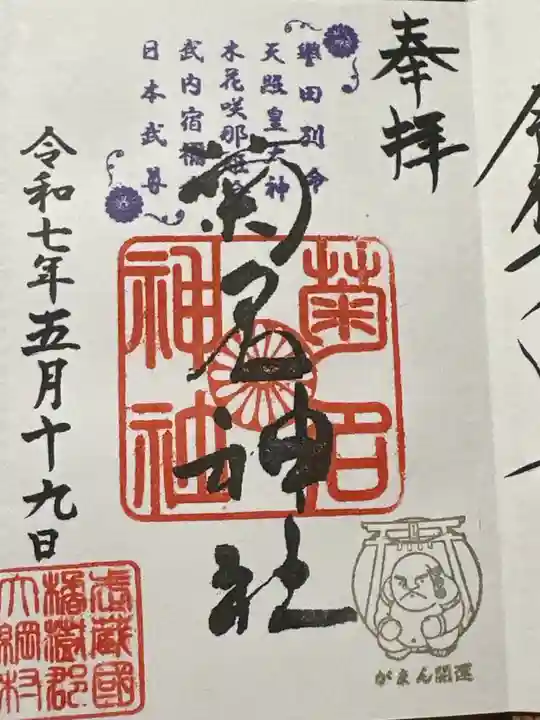 奉拝
譽田別命
天照皇大神
木花咲那姫命
武内宿禰
日本武尊
菊名神社
菊名
神社
令和七年五月十九日
がまん開運
武蔵國
橘樹郡
大綱村